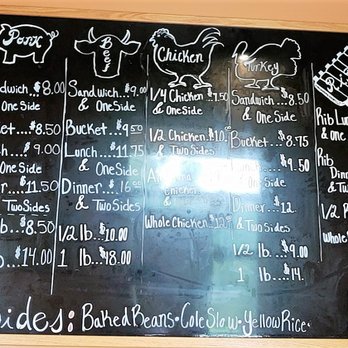 Pork
ndwich..$8.00
One Side
ket...$8.50
ch...$9.00
ne Side
er...$11.50
Two Sides
b...$8.50
b...$14.00
Beef
Sandwich...$9.00
& One Side
Bucket...$9.50
Lunch...$11.75
& One Side
Dinner..$16.00
& Two Sides
1/2 lb...$10.00
1 lb...$48.00
Chicken
1/4 Chicken..$7.50
& One Side
1/2 Chicken.$10.
& Two Sides
Chicken
Whole Chicken..$12.
Turkey
Sandwich..$8.50
& One Side
Bucket...$8.75
$9.50
One Side
Dinner...$12.
& Two Sides
1/2 lb...$9.00
1 lb...$14.
Rib Lun
& One
Rib
Din
& Tw
1/2 R
Whole
ides: Baked Beans • Cole Slaw • Yellow Rice •